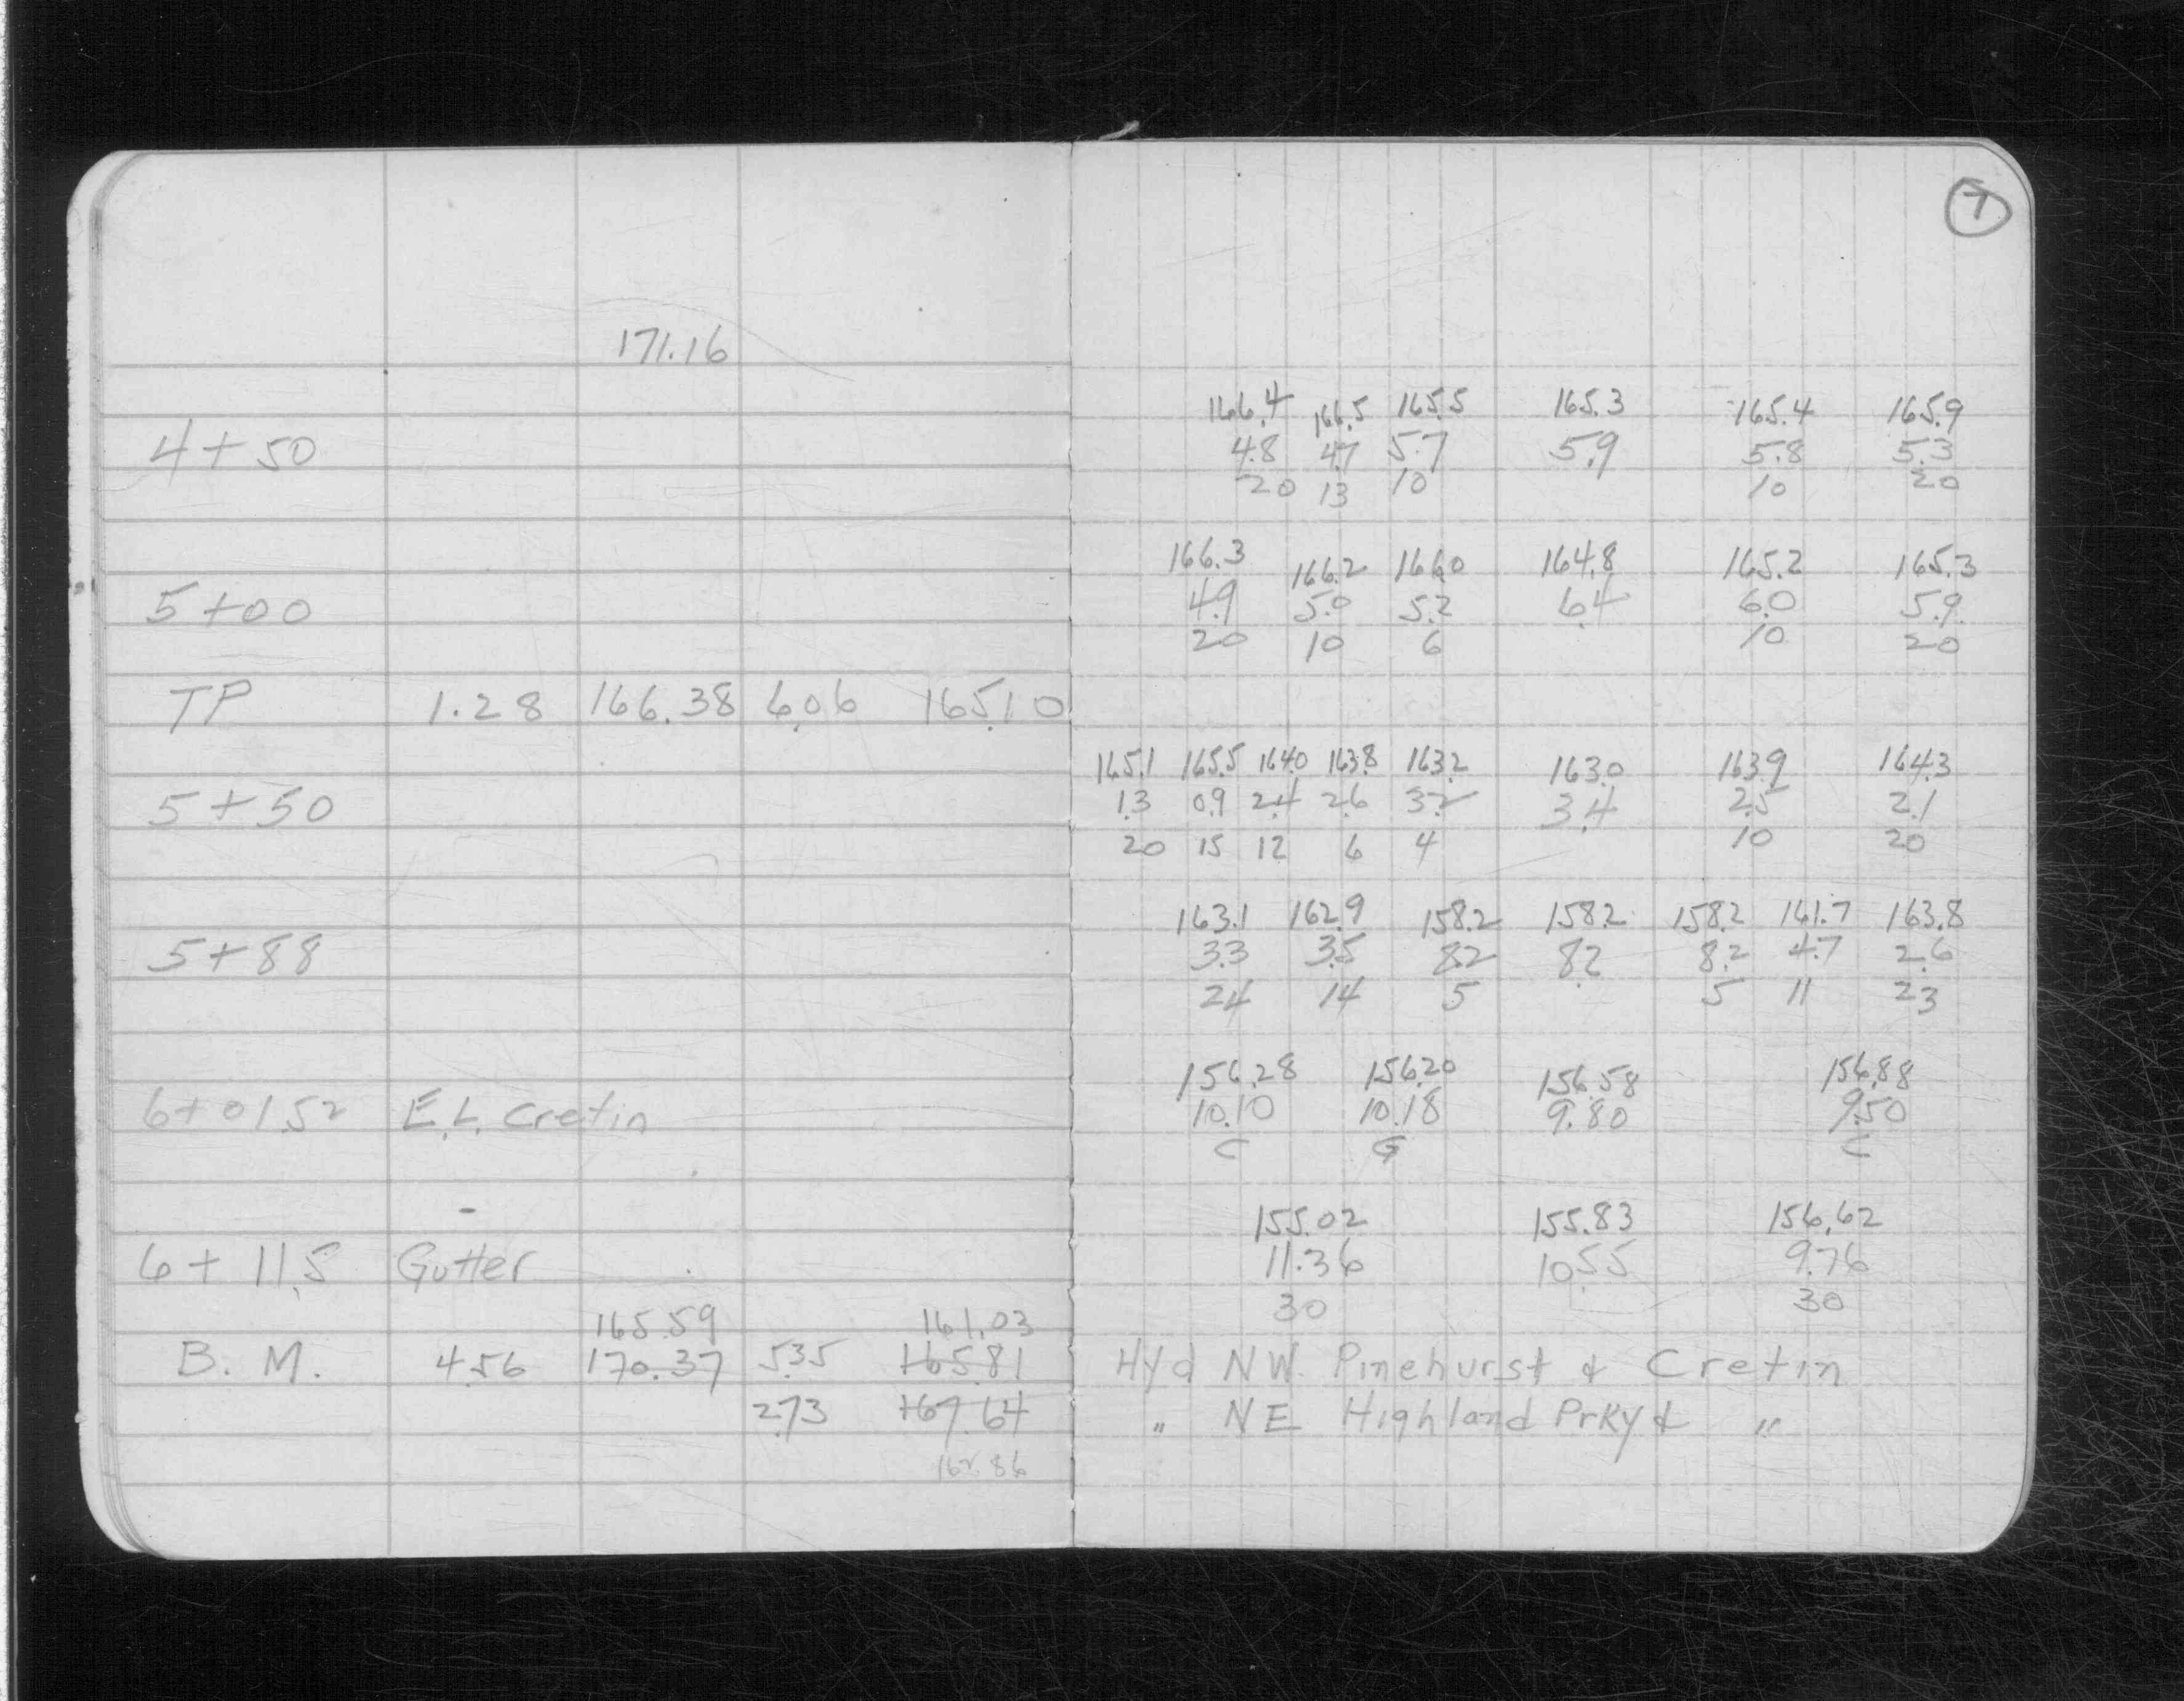 7
171.16
166.4 166.5 165.5 165.3 165.4 165.9
4+50 4.8 4.7 5.7 5.9 5.8 5.3
20 13 10 10 20
166.3 166.2 166.0 164.8 165.2 165.3
5+00 4.9 5.0 5.2 6.4 6.0 5.9
20 10 6 10 20
TP 1.28 166.38 6.06 165.10
165.1 165.5 164.0 163.8 163.2 163.0 163.9 164.3
5+50 1.3 0.9 2.4 2.6 3.2 3.4 2.5 2.1
20 15 12 6 4 10 20
163.1 162.9 158.2 158.2 158.2 161.7 163.8
5+88 3.3 3.5 8.2 8.2 8.2 4.7 2.6
24 14 5 5 11 23
156.28 156.20 156.58 156.88
6+01.52 E.L. Cretin 10.10 10.18 9.80 9.50
C G C
155.02 155.83 156.62
6+11.5 Gutter 11.36 10.55 9.76
30 30
165.59 161.03
B.M. 4.56 170.37 5.35 165.81 Hyd NW. Pinehurst & Cretin
2.73 167.64 " NE Highland Prky & "
162.86